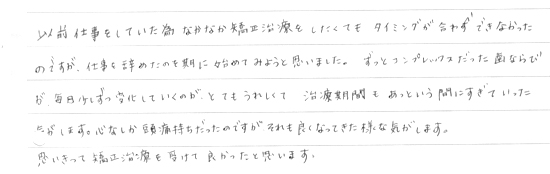 以前仕事をしていた為 なかなか矯正治療を したくても タイミングが合わず できなかった
のですが、仕事を辞めたのを期に 始めてみようと思いました。 ずっとコンプレックスだった歯ならび
が、毎日少しずつ変化していくのが、とてもうれしくて 治療期間も あっという間にすぎていった
気がします。心なしか頭痛持ちだったのですが それも良くなってきた様な気がします。
思いきって 矯正治療を受けて 良かったと思います。